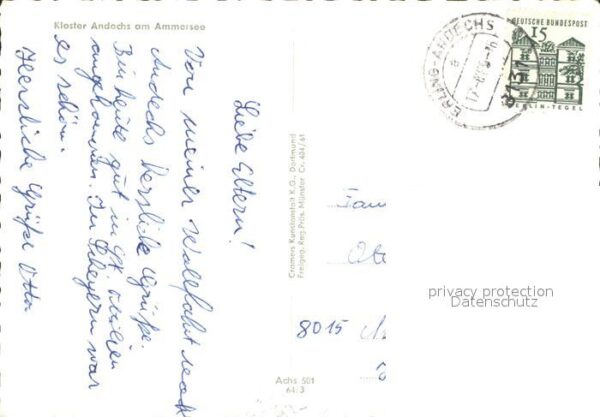 Kloster Andechs am Ammersee
Liebe Eltern!
Von meiner Wallfahrt nach
Andechs herzliche Grüße.
Bin heute gut in
angekommen. In Scheyern war
es schön.
Herzliche Grüße
Cramers Kunstanstalt K.G., Dortmund
Freigeg. Reg. Präs. Münster, Cr. 404/61
Achs 501
64/3
ERLING-ANDECHS
8131
DEUTSCHE BUNDESPOST
15
BERLIN-TEGEL
Fam
8015
privacy protection
Datenschutz